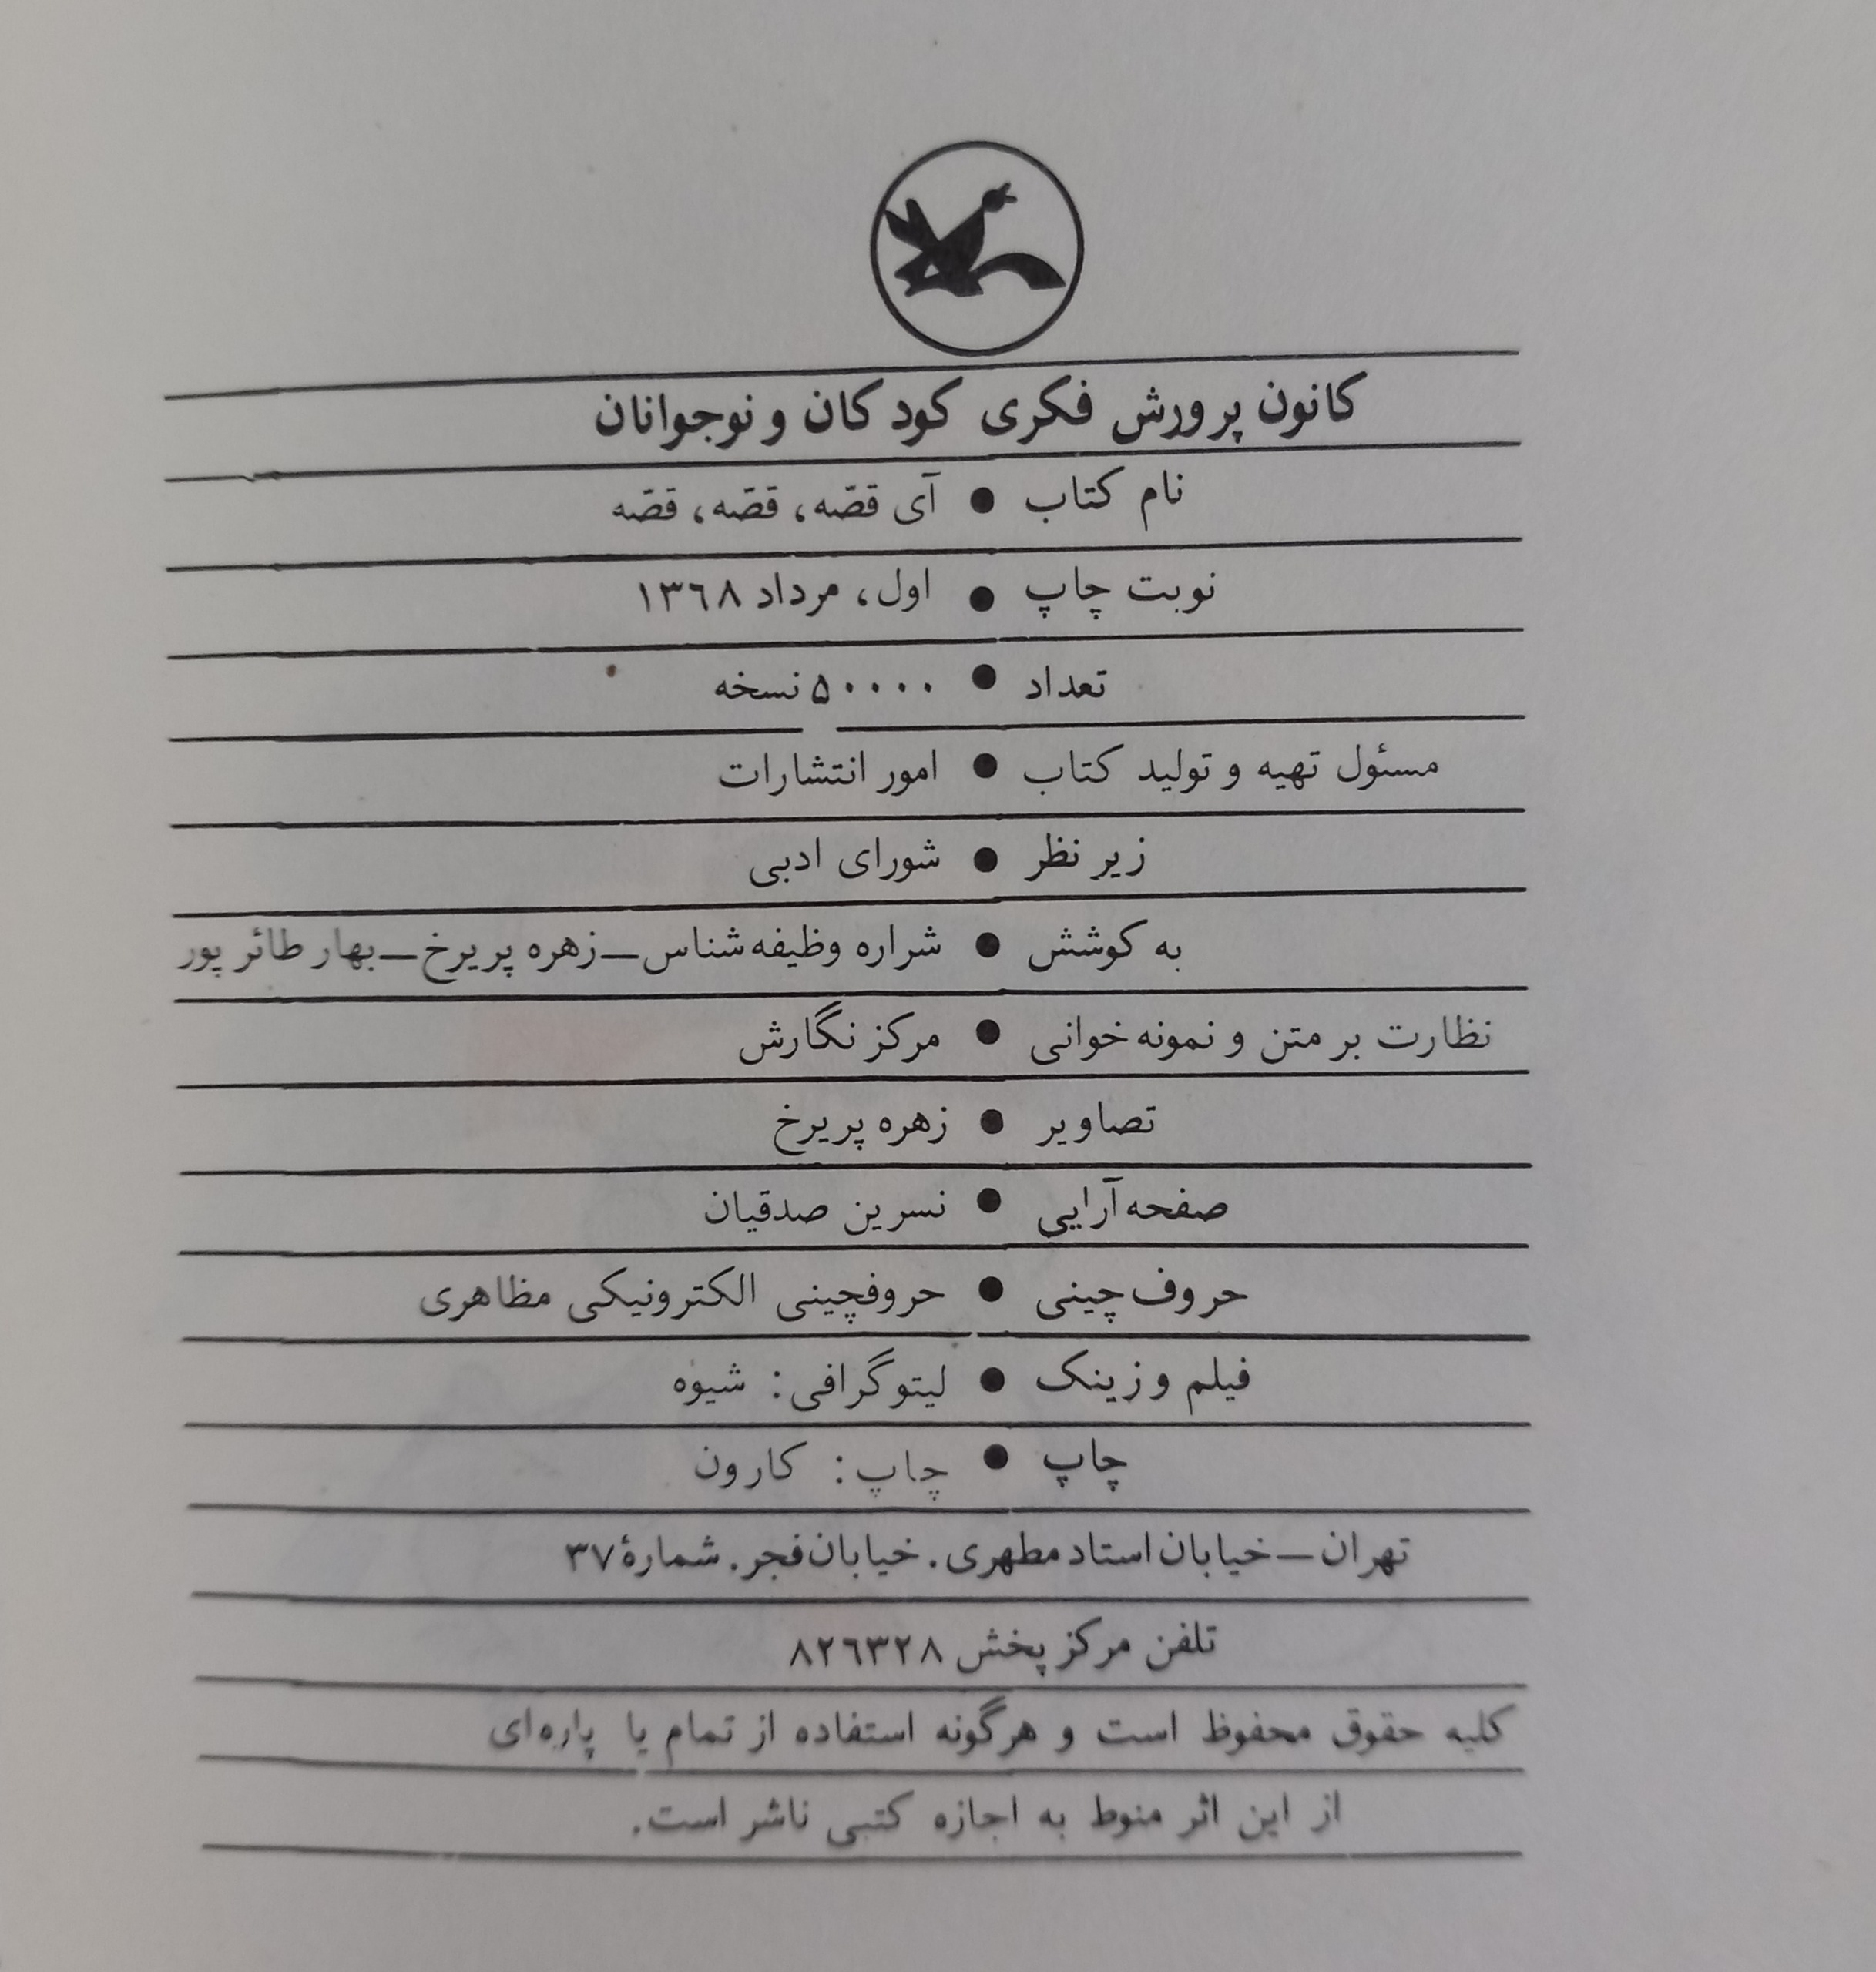 کانون پرورش فکری کودکان و نوجوانان
نام کتاب ● آی قصّه، قصّه، قصّه
نوبت چاپ ● اول، مرداد ۱۳٦۸
تعداد ● ۵۰۰۰۰ نسخه
مسئول تهیه و تولید کتاب ● امور انتشارات
زیر نظر ● شورای ادبی
به کوشش ● شراره وظیفه‌شناس—زهره پریرخ—بهار طائر پور
نظارت بر متن و نمونه‌خوانی ● مرکز نگارش
تصاویر ● زهره پریرخ
صفحه‌آرایی ● نسرین صدقیان
حروف‌چینی ● حروفچینی الکترونیکی مظاهری
فیلم و زینک ● لیتوگرافی: شیوه
چاپ ● چاپ: کارون
تهران—خیابان استاد مطهری. خیابان فجر. شمارهٔ ۳۷
تلفن مرکز پخش ۸۲٦۳۲۸
کلیه حقوق محفوظ است و هرگونه استفاده از تمام یا پاره‌ای
از این اثر منوط به اجازه کتبی ناشر است.